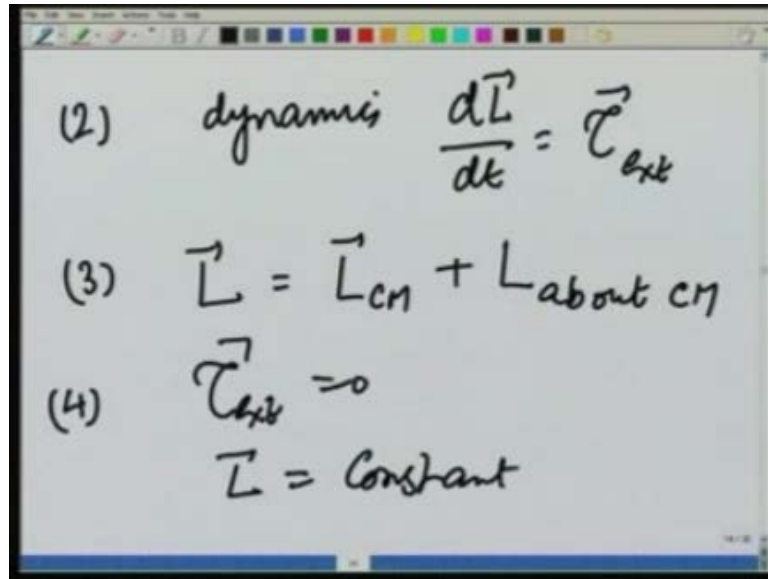 (2) dynamics dL⃗/dt = τ⃗ext
(3) L⃗ = L⃗CM + Labout CM
(4) τ⃗ext = 0
L⃗ = Constant